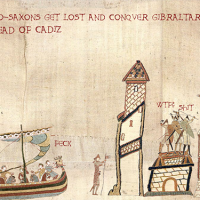 O-SAXONS GET LOST AND CONQVER GIBRALTAR
EAD OF CADIZ
FECK
WTF?
SHJT